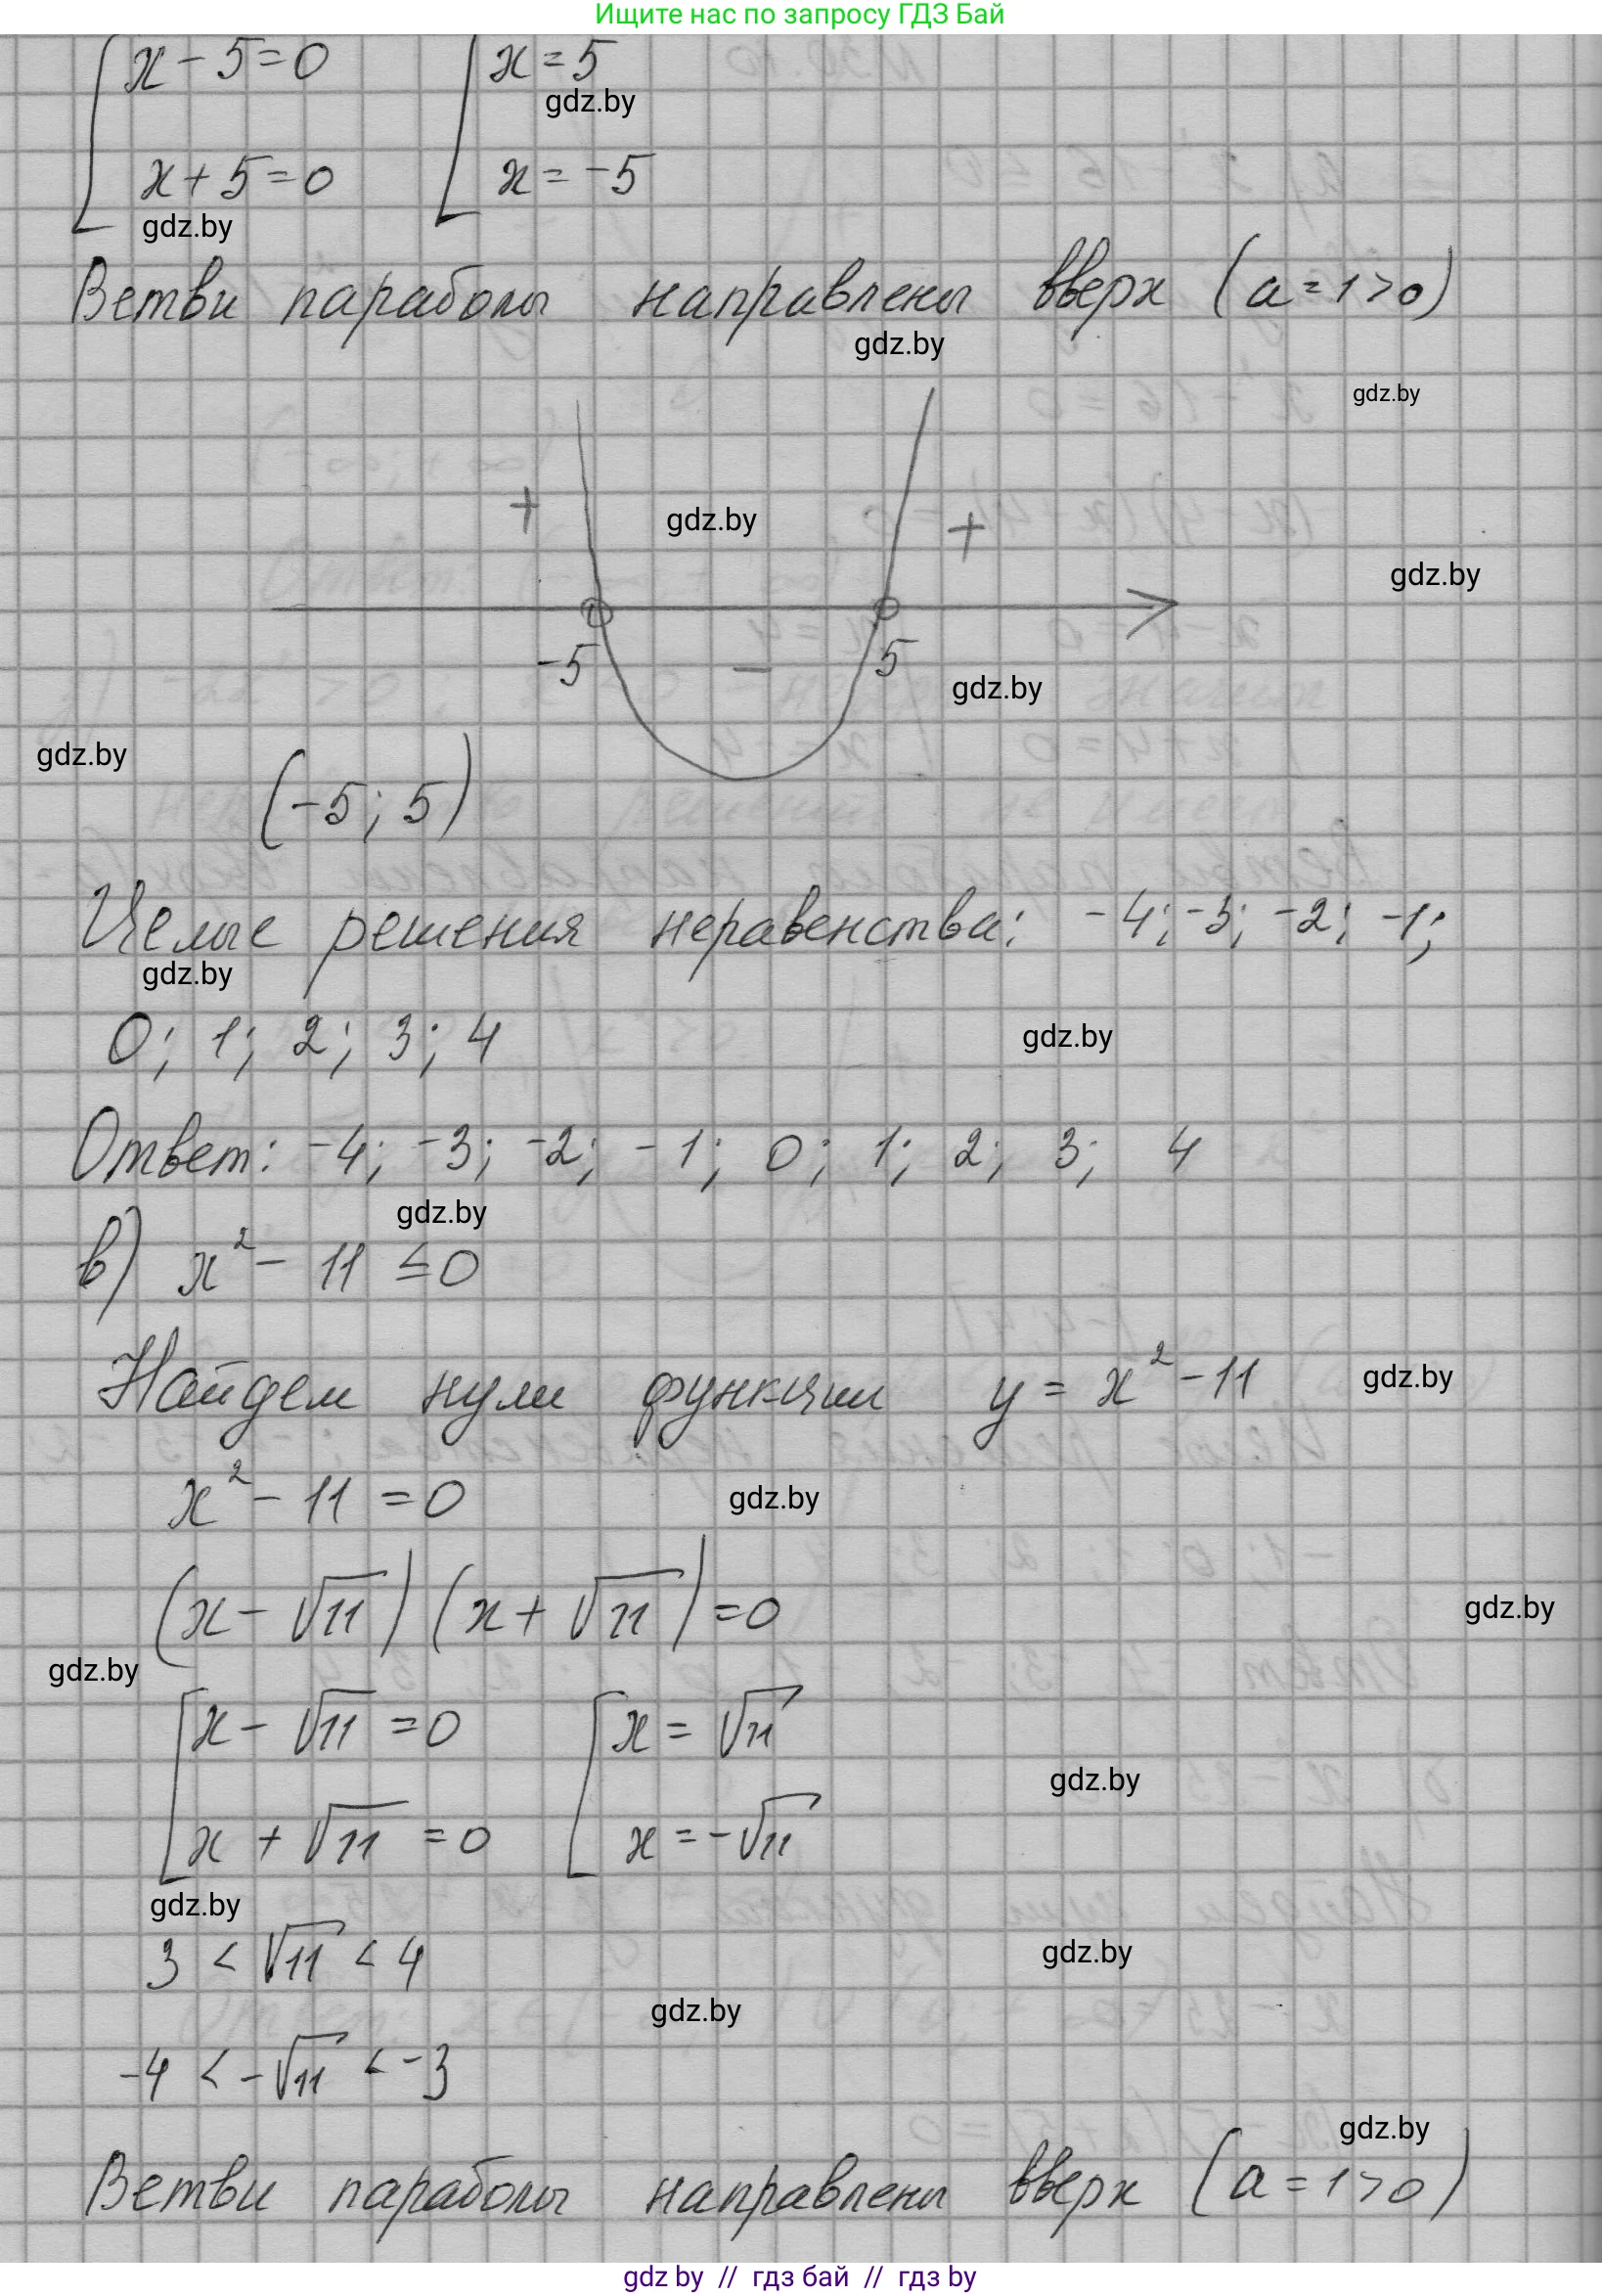 Ищите нас по запросу ГДЗ Бай
x - 5 = 0    x = 5
gdz.by
x + 5 = 0    x = -5
gdz.by
Ветви параболы направлены вверх (a = 1 > 0)
gdz.by
gdz.by
+ gdz.by +
gdz.by
-5 − 5
gdz.by
gdz.by
(-5; 5)
Целые решения неравенства: -4; -3; -2; -1;
gdz.by
0; 1; 2; 3; 4
gdz.by
Ответ: -4; -3; -2; -1; 0; 1; 2; 3; 4
gdz.by
в) x² - 11 ≤ 0
Найдем нули функции y = x² - 11
gdz.by
x² - 11 = 0
gdz.by
(x - √11)(x + √11) = 0
gdz.by
gdz.by
x - √11 = 0    x = √11
gdz.by
x + √11 = 0    x = -√11
gdz.by
3 < √11 < 4
gdz.by
gdz.by
-4 < -√11 < -3
gdz.by
Ветви параболы направлены вверх (a = 1 > 0)
gdz by // гдз бай // гдз by